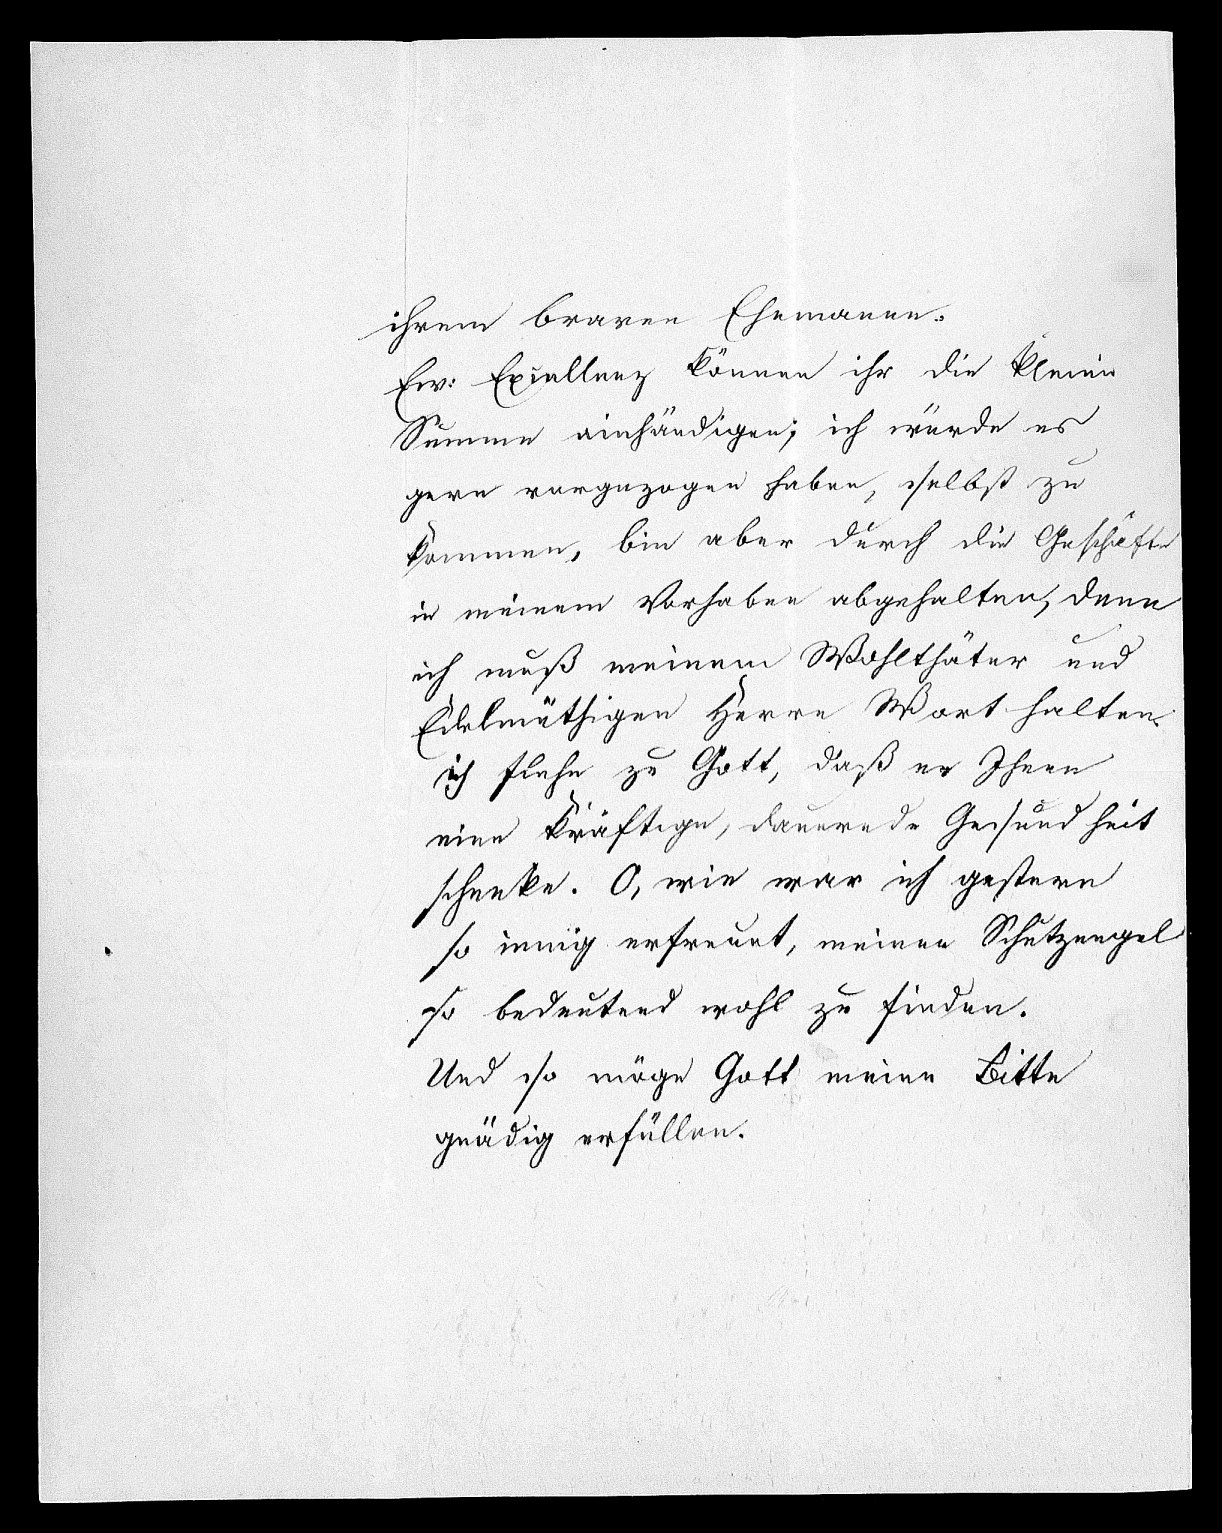 ihrem braven Ehemanne.
Ew: Excellenz können ihr die kleine
Summe einhändigen; ich würde es
gern vorgezogen haben, selbst zu
kommen, bin aber durch die Geschäfte
in meinem Vorhaben abgehalten, denn
ich muß meinem Wohlthäter und
Edelmüthigen Herrn Wort halten.
ich flehe zu Gott, daß er Ihnen
eine kräftige, dauernde Gesundheit
schenke. O, wie war ich gestern
so innig erfreut, meinen Schutzengel
so bedeutend wohl zu finden.
Und so möge Gott meine Bitte
gnädig erfüllen.